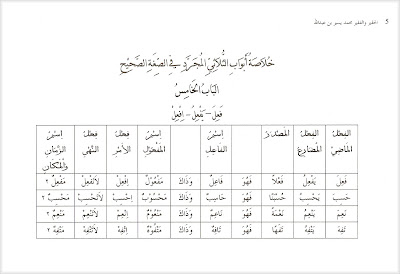 5 الحقير والفقير محمد يسير بن عبدالله
خُلَاصَةُ أَبْوَابِ الثُّلَاثِيِّ المُجَرَّدِ فِي الصِّيْغَةِ الصَّحِيْحِ
البَابُ الخَامِسُ
فَعِلَ – يَفْعِلُ – اِفْعِلْ
الفِعْلُ المَاضِيْ الفِعْلُ المُضَارِعُ المَصْدَرُ اِسْمُ الفَاعِلِ اِسْمُ المَفْعُوْلِ فِعْلُ الأَمْرِ فِعْلُ النَّهْيِ اِسْمُ الزَّمَانِ وَالمَكَانِ
فَعِلَ يَفْعِلُ فَعْلًا فَهُوَ فَاعِلٌ وَذَاكَ مَفْعُوْلٌ اِفْعِلْ لَاتَفْعِلْ مَفْعِلٌ ٢
حَسِبَ يَحْسِبُ حُسْبًا فَهُوَ حَاسِبٌ وَذَاكَ مَحْسُوْبٌ اِحْسِبْ لَاتَحْسِبْ مَحْسِبٌ ٢
نَعِمَ يَنْعِمُ نَعْمَةً فَهُوَ نَاعِمٌ وَذَاكَ مَنْعُوْمٌ اِنْعِمْ لَاتَنْعِمْ مَنْعِمٌ ٢
تَفِهَ يَتْفِهُ تَفَهًا فَهُوَ تَافِهٌ وَذَاكَ مَتْفُوْهٌ اِتْفِهْ لَاتَتْفِهْ مَتْفِهٌ ٢